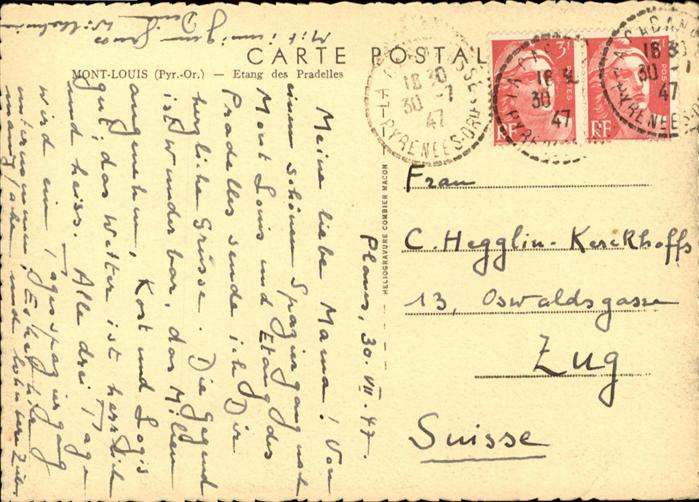 CARTE POSTALE
MONT-LOUIS (Pyr.-Or.) — Etang des Pradelles
Plans, 30. VII. 47.
Meine liebe Mama! Von
einem schönen Spaziergang nach
Mont Louis und Etang des
Pradelles sende ich Dir
herzliche Grüsse. Die Gegend
ist wunderbar, das Milieu
angenehm, Kost und Logis
gut, das Wetter ist herrlich
und heiss. Alle drei Tage
wird ein Tagesspaziergang
unternommen.
Mit innigem Gruss
Dein
HELIOGRAVURE COMBIER MACON
LA CABANASSE
18 30
30 -7
47
PYRENEES ORIES
3F
POSTES
RF
RF
Frau
C. Hegglin-Kerckhoffs
13, Oswaldsgasse
Zug
Suisse